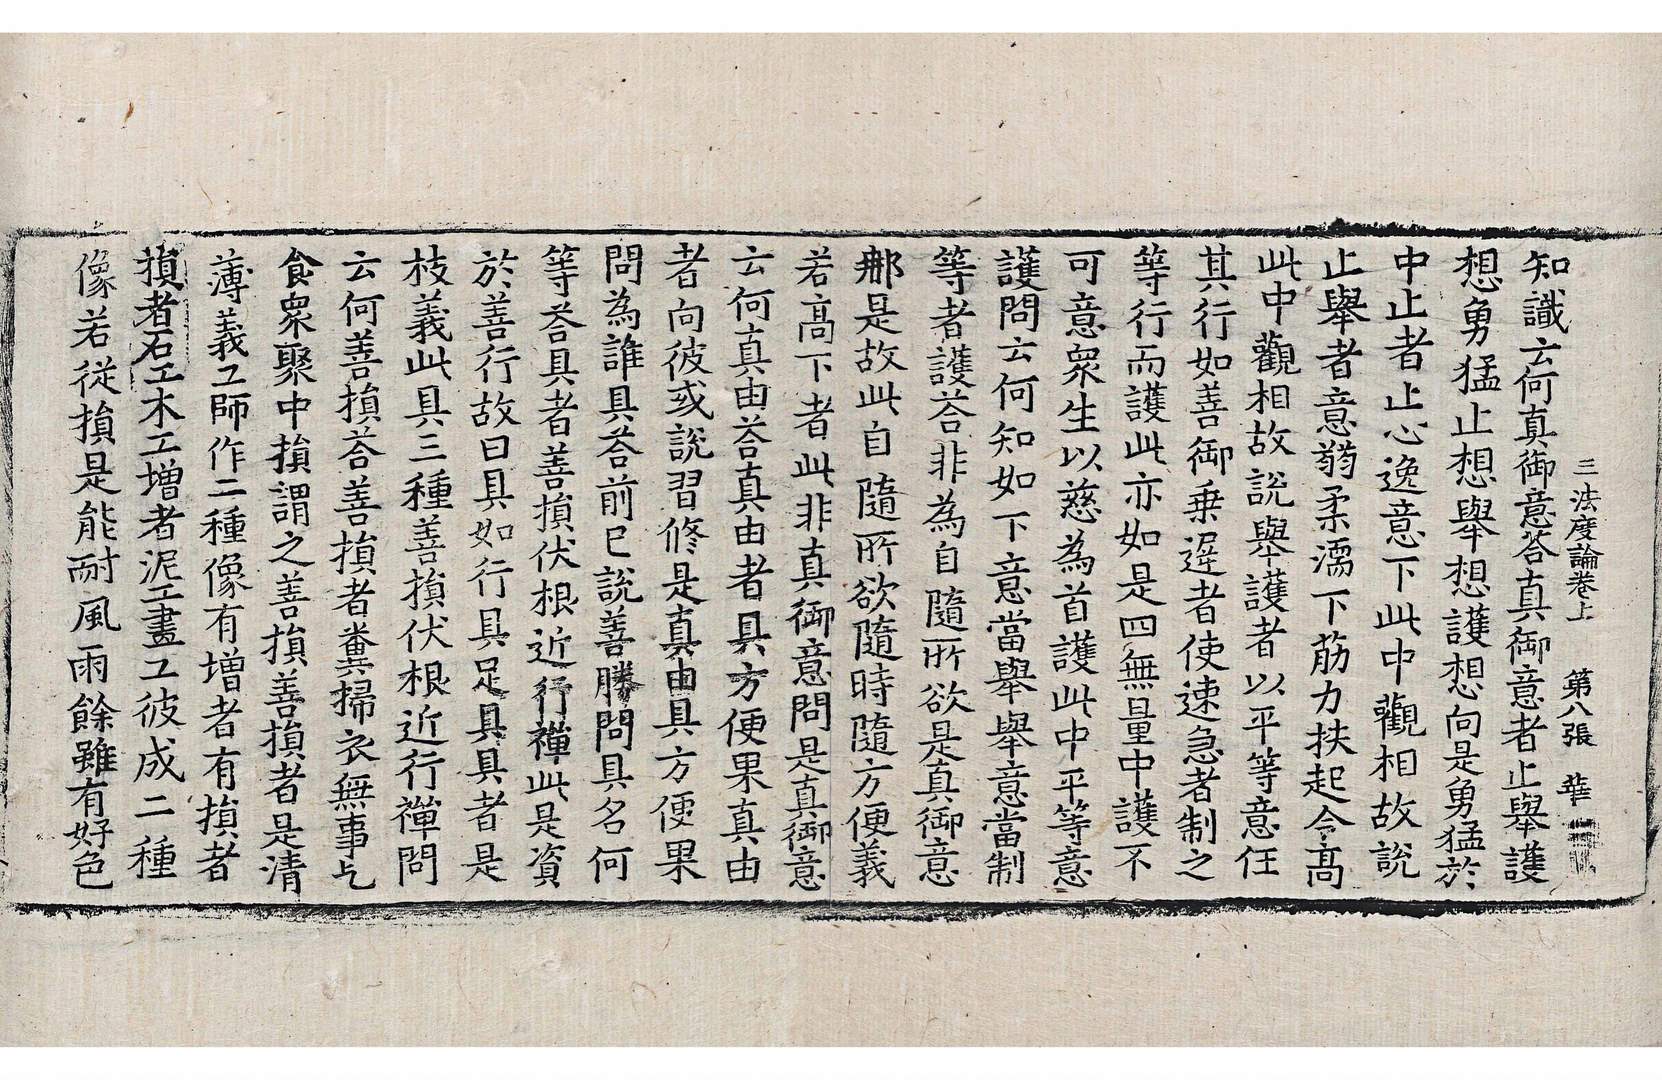 三法度論卷上　第八張　華
知識云何真御意荅真御意者止舉護
想勇猛止想舉想護想向是勇猛於
中止者止心逸意下此中觀相故說
止舉者意弱柔濡下筋力扶起令高
此中觀相故說舉護者以平等意任
其行如善御乗遲者使速急者制之
等行而護此亦如是四無量中護不
可意衆生以慈為首護此中平等意
護問云何知如下意當舉舉意當制
等者護荅非為自隨所欲是真御意
那是故此自隨所欲隨時隨方便義
若高下者此非真御意問是真御意
云何真由荅真由者具方便果真由
者向彼或說習修是真由具方便果
問為誰具荅前已說善勝問具名何
等荅具者善損伏根近行禪此是資
於善行故曰具如行具足具具者是
枝義此具三種善損伏根近行禪問
云何善損荅善損者糞掃衣無事乞
食衆聚中損謂之善損善損者是清
薄義工師作二種像有增者有損者
損者石工木工增者泥工畫工彼成二種
像若從損是能耐風雨餘雖有好色